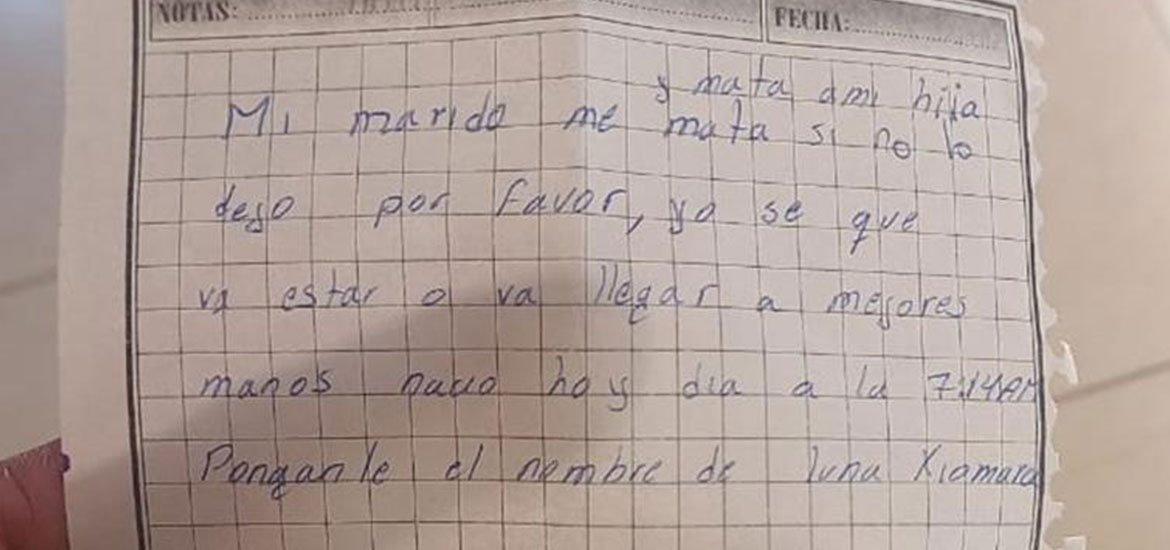 NOTAS: FECHA:
y mata ami hija
Mi marido me mata si no lo
dejo por favor, ya se que
va estar o va llegar a mejores
manos nacio hoy dia a la 7:14AM
Pongan le el nombre de luna Xiamara